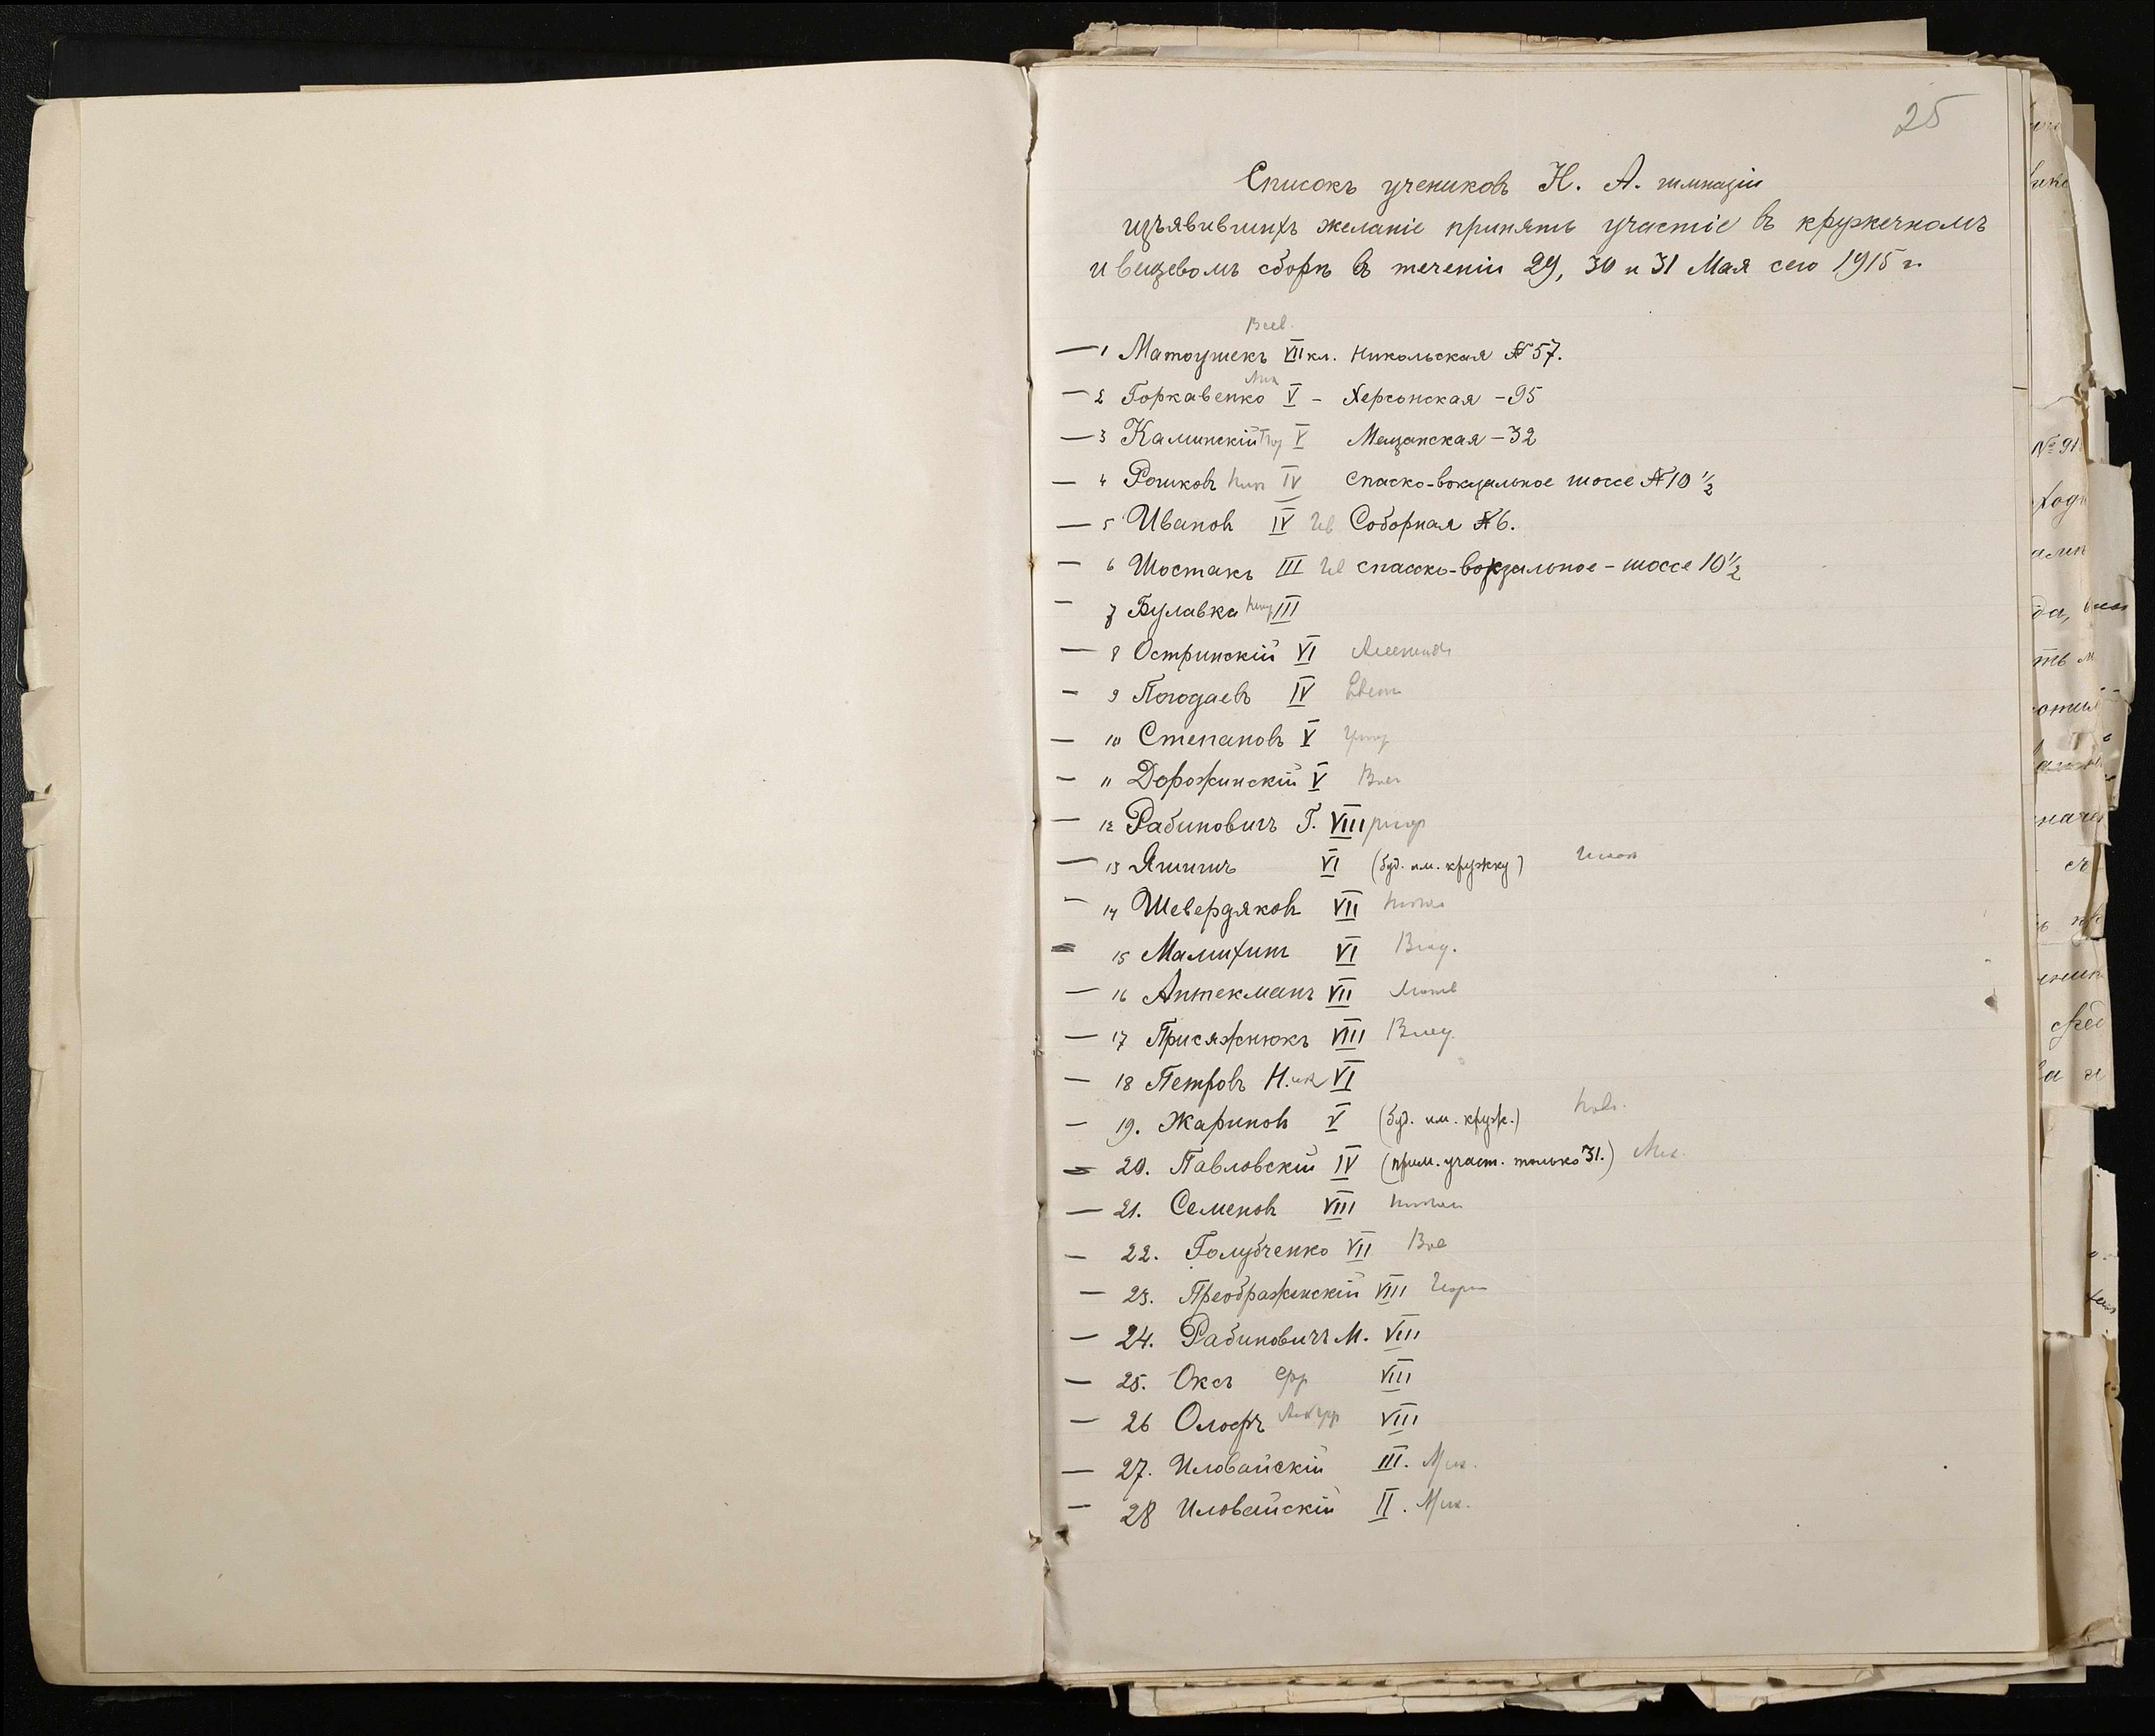 25
Списокъ учениковъ Н. А. гимназіи
изъявившихъ желаніе принять участіе въ кружечномъ
и вещевомъ сборѣ въ теченіи 29, 30 и 31 Мая сего 1915 г.
Всев.
— 1 Матоушекъ VII кл. Никольская № 57.
— 2 Горкавенко V – Херсонская – 95
— 3 Калинскій V Мещанская – 32
— 4 Рошковъ IV Спаско-вокзальное шоссе № 10 1/2
— 5 Ивановъ IV Соборная № 6.
— 6 Шостакъ III спасско-вокзальное – шоссе 10 1/2
— 7 Булавка III
— 8 Остринскій VI
— 9 Погодаевъ IV
— 10 Степановъ V
— 11 Дорожинскій V
— 12 Рабиновичъ Г. VIII
— 13 Яшинъ VI (буд. им. кружку)
— 14 Шевердяковъ VII
— 15 Малихинъ VI Влад.
— 16 Аптекманъ VII
— 17 Присяжнюкъ VIII Влад.
— 18 Петровъ Н. VI
— 19. Жариновъ V (буд. им. круж.)
— 20. Павловскій IV (прим. участ. только 31.) Мих.
— 21. Семеновъ VIII
— 22. Голубченко VII
— 23. Преображенскій VIII
— 24. Рабиновичъ М. VIII
— 25. Оксъ VIII
— 26 Олофъ VIII
— 27. Иловайскій III. Мих.
— 28 Иловайскій II. Мих.